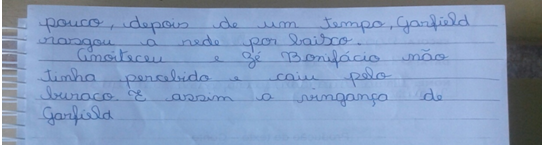 pouco, depois de um tempo, Garfield
rasgou a rede por baixo.
Anoiteceu e Zé Bonifácio não
tinha percebido e caiu pelo
buraco. E assim a vingança de
Garfield